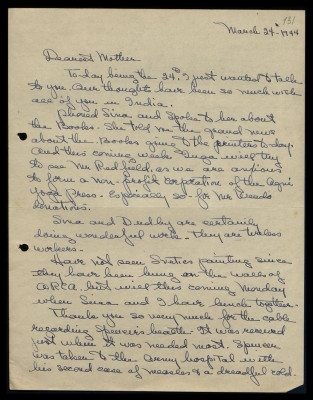 131
March 24th 1944
Dearest Mother
Today being the 24th I just wanted to talk
to you. Our thoughts have been so much with
all of you in India.
Phoned Sina and spoke to her about
the Books. She told me the grand news
about the Books going to the printers to-day.
And this coming week Inga will try
to see Mr Redfield, as we are anxious
to form a non-profit corporation of the Agni
Yoga Press. Especially so for Mr Weeds
donations.
Sina and Dudley are certainly
doing wonderful work. They are tireless
workers.
Have not seen Svetics painting since
they have been hung on the walls of
ARCA. but will this coming Monday
when Sina and I have lunch together.
Thank you so very much for the cable
regarding Spencer's health. It was received
just when it was needed most. Spencer
was taken to the Army hospital with
his second case of measles & a dreadful cold.